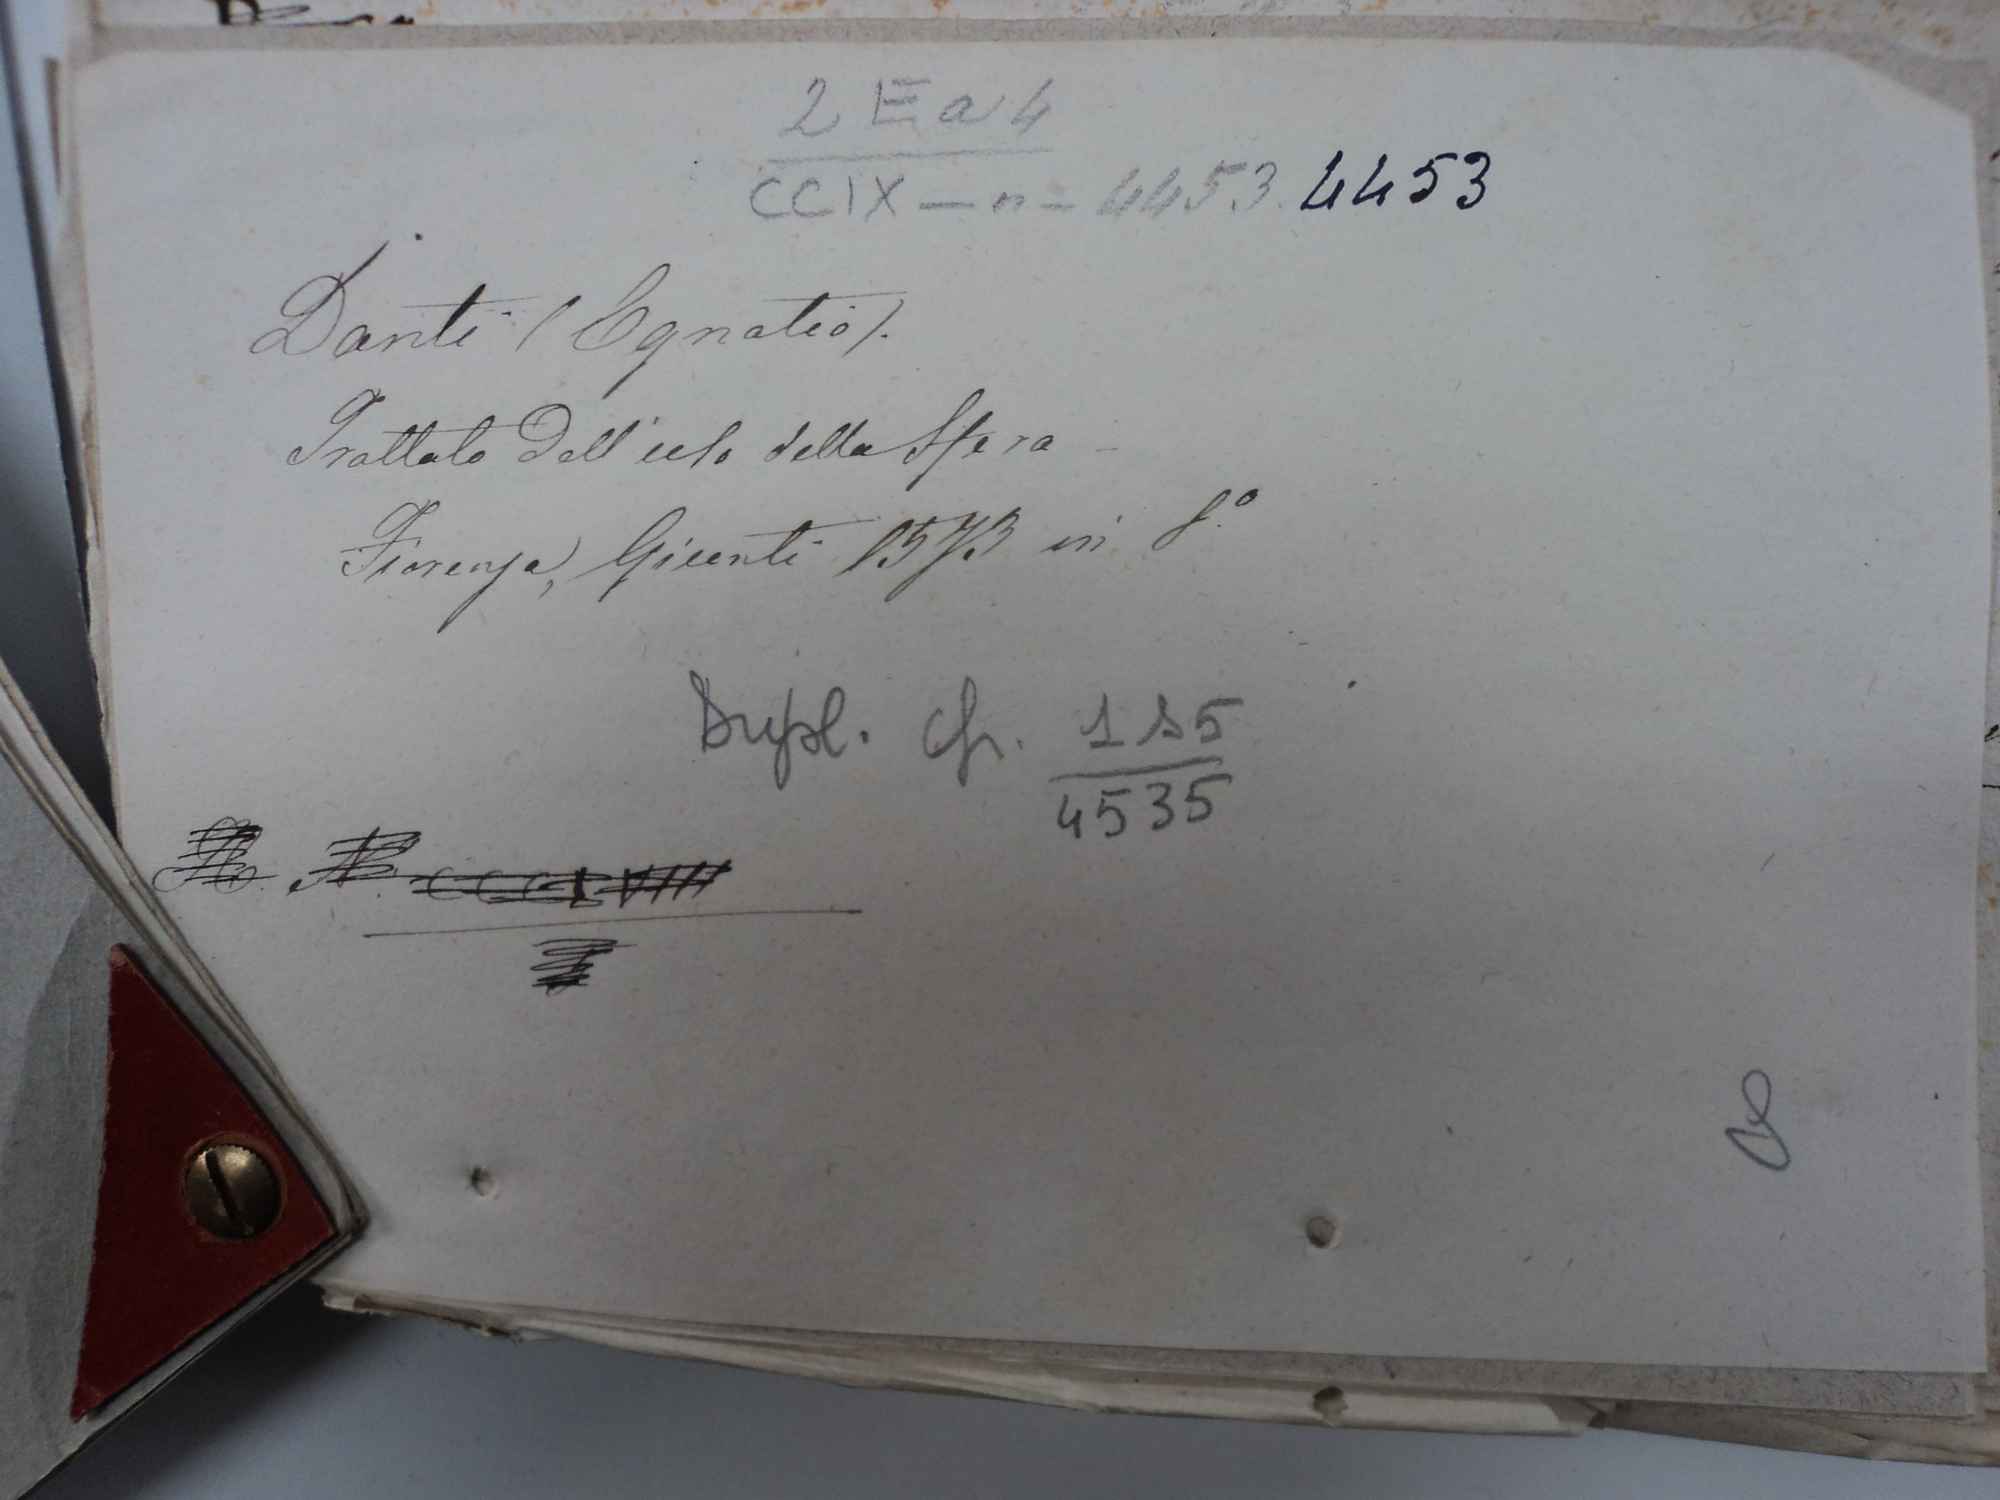 2 E a 4
CCIX - n - 4453. 4453
Danti (Egnatio).
Trattato dell'uso della Sfera -
Fiorenza, Giunti 1573 in 8.°
Dupl. cfr. 1 S 5
4535
CCCLVIII